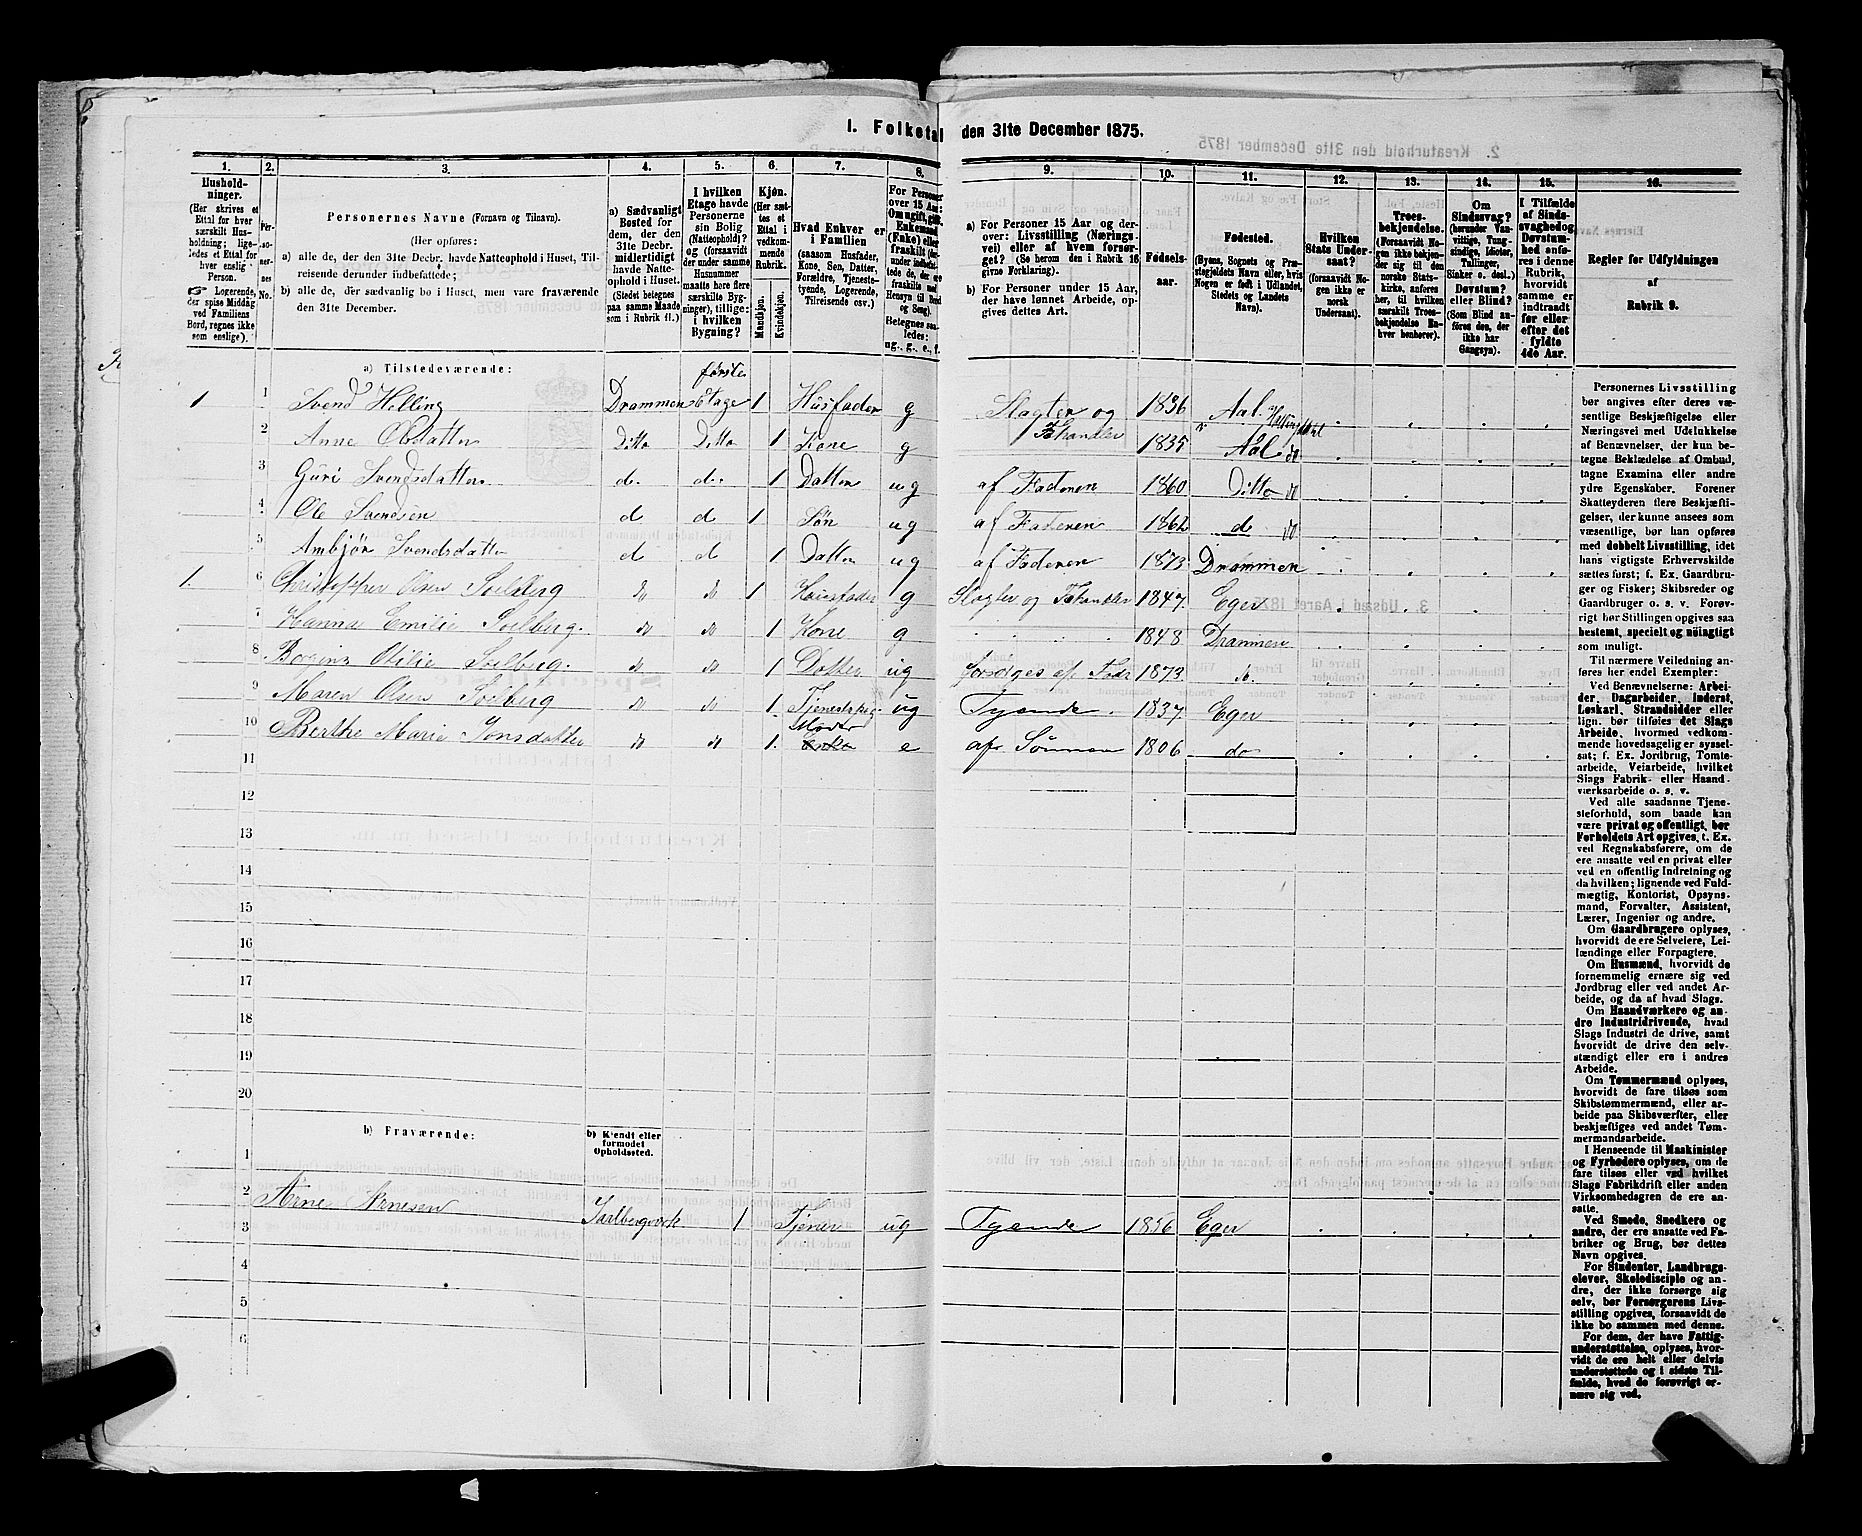 I. Folketal den 31te December 1875.
1. 2. 3. 4. 5. 6. 7. 8. 9. 10. 11. 12. 13. 14. 15. 16.
Husholdninger.
(Her skrives et Ettal for hver særskilt Husholdning; ligeledes et Ettal for hver enslig Person.
Logerende, der spise Middag ved Familiens Bord, regnes ikke som enslige).
Personernes No.
Personernes Navne (Fornavn og Tilnavn).
(Her opføres:
a) alle de, der den 31te Decbr. havde Natteophold i Huset, Tilreisende derunder indbefattede;
b) alle de, der sædvanlig bo i Huset, men vare fraværende den 31te December.
a) Sædvanligt Bosted for dem, der den 31te Decbr. midlertidigt havde Natteophold i Huset.
(Stedet betegnes paa samme Maade som i Rubrik 11.)
I hvilken Etage havde Personerne sin Bolig (Natteophold)?
og (forsaavidt der under samme Husnummer maatte høre flere særskilte Bygninger), tillige: i hvilken Bygning?
Kjøn.
(Her sættes et Ettal i vedkommende Rubrik.
Mandkjøn. Kvindekjøn.
Hvad Enhver er i Familien
(saasom Husfader, Kone, Søn, Datter, Forældre, Tjenestetyende, Logerende, Tilreisende osv.)
For Personer over 15 Aar:
a) For Personer 15 Aar og derover: Livsstilling (Næringsvei) eller af hvem forsørget? (Se herom den i Rubrik 16 givne Forklaring).
b) For Personer under 15 Aar, der have lønnet Arbeide, opgives dettes Art.
Fødselsaar.
Fødested.
(Byens, Sognets og Præstegjeldets Navn eller, hvis Nogen er født i Udlandet, Stedets og Landets Navn).
Hvilken Stats Undersaat?
(forsaavidt Nogen ikke er norsk Undersaat).
Troesbekjendelse.
(Forsaavidt Nogen ikke bekjender sig til den norske Statskirke, anføres her, til hvilken særskilt Troesbekjendelse Enhver benhører).
Om Sindssvag? (herunder Vanvittige, Tungsindige, Idioter, Tullinger, Sinker o. desl.) Døvstum? eller Blind?
(Som Blind anføres den, der ikke har Gangsyn).
I Tilfælde af Sindssvaghed og Døvstumhed anføres i denne Rubrik, hvorvidt samme er indtraadt før eller efter det fyldte 4de Aar.
Regler for Udfyldningen af Rubrik 9.
a) Tilstedeværende:
1 1 Svend Helling Drammen første Etage 1 Husfader g Slagter og Fehandler 1836 Aal Hallingdal
2 Anne Olsdatter Ditto Ditto 1 Kone g 1835 Aal do
3 Guri Svendsdatter d. d. 1 Datter ug af Faderen 1860 Ditto do
4 Ole Svendsen d d 1 Søn ug af Faderen 1862 d. do
5 Ambjør Svendsdatter d d 1 Datter ug af Faderen 1873 Drammen
1 6 Christopher Olsen Soelberg do do 1 Huusfader g Slagter og Fehandler 1847. Eger
7 Hanna Emilie Soelberg. do do 1 Kone g 1848 Drammen
8 Bergina Otilie Soelberg. do do 1 Datter ug forsørges af Fadr 1873 do.
9 Maren Olsen Soelberg do do 1. ug Tyende. 1837. Eger
10 Berthe Marie Jonsdatter do do 1. Moder Enke e afr Sønnen 1806 do
11
12
13
14
15
16
17
18
19
20
b) Fraværende:
b) Kjendt eller formodet Opholdssted.
1
2
3 Arne Arnesen 1 Tjener ug Tyende 1856 Eger
4
5
6
Personernes Livsstilling bør angives efter deres væsentlige Beskjæftigelse eller Næringsvei med Udelukkelse af Benævnelser, der kun betegne Beklædelse af Ombud, tagne Examina eller andre ydre Egenskaber. Forener Skatteyderen flere Beskjæftigelser, der kunne ansees som væsentlige, bør han opføres med dobbelt Livsstilling, idet hans vigtigste Erhvervskilde sættes først; f. Ex. Gaardbruger og Fisker; Skibsreder og Gaardbruger o. s. v. Forøvrigt bør Stillingen opgives saa bestemt, specielt og nøiagtigt som muligt.
Til nærmere Veiledning anføres her endel Exempler:
Ved Benævnelserne: Arbeider, Dagarbeider, Inderst, Løskarl, Strandsidder eller lign. bør tilføies det Slags Arbeide, hvormed vedkommende hovedsagelig er sysselsat; f. Ex. Jordbrug, Tomtearbeide, Veiarbeide, hvilket Slags Fabrik- eller Haandværksarbeide o. s. v.
Ved alle saadanne Tjenesteforhold, som baade kan være privat og offentligt, bør Forholdets Art opgives, t. Ex. ved Regnskabsførere, om de ere ansatte ved en privat eller ved en offentlig Indretning og da hvilken; lignende ved Fuldmægtig, Kontorist, Opsynsmand, Forvalter, Assistent, Lærer, Ingeniør og andre.
Om Gaardbrugere oplyses, hvorvidt de ere Selveiere, Leilændinge eller Forpagtere.
Om Husmænd, hvorvidt de fornemmelig ernære sig ved Jordbrug eller ved andet Arbeide, og da af hvad Slags.
Om Haandværkere og andre Industridrivende, hvad Slags Industri de drive, samt hvorvidt de drive den selvstændigt eller ere i andres Arbeide.
Om Tømmermænd oplyses, hvorvidt de fare tilsøs som Skibstømmermænd, eller arbeide paa Skibsværfter, eller beskjæftiges ved andet Tømmermandsarbeide.
I Henseende til Maskinister og Fyrbødere oplyses, om de fare tilsøs eller ved hvilket Slags Fabrikdrift eller anden Virksomhed de ere ansatte.
Ved Smede, Snedkere og andre, der ere ansatte ved Fabriker og Brug, bør dettes Navn opgives.
For Studenter, Landbrugselever, Skoledisciple og andre, der ikke forsørge sig selv, bør Forsørgerens Livsstilling opgives, forsaavidt de ikke bo sammen med denne.
For dem, der have Fattigunderstøttelse, oplyses, hvorvidt de ere helt eller delvis understøttede og i sidste Tilfælde, hvad de forøvrigt ernære sig ved.